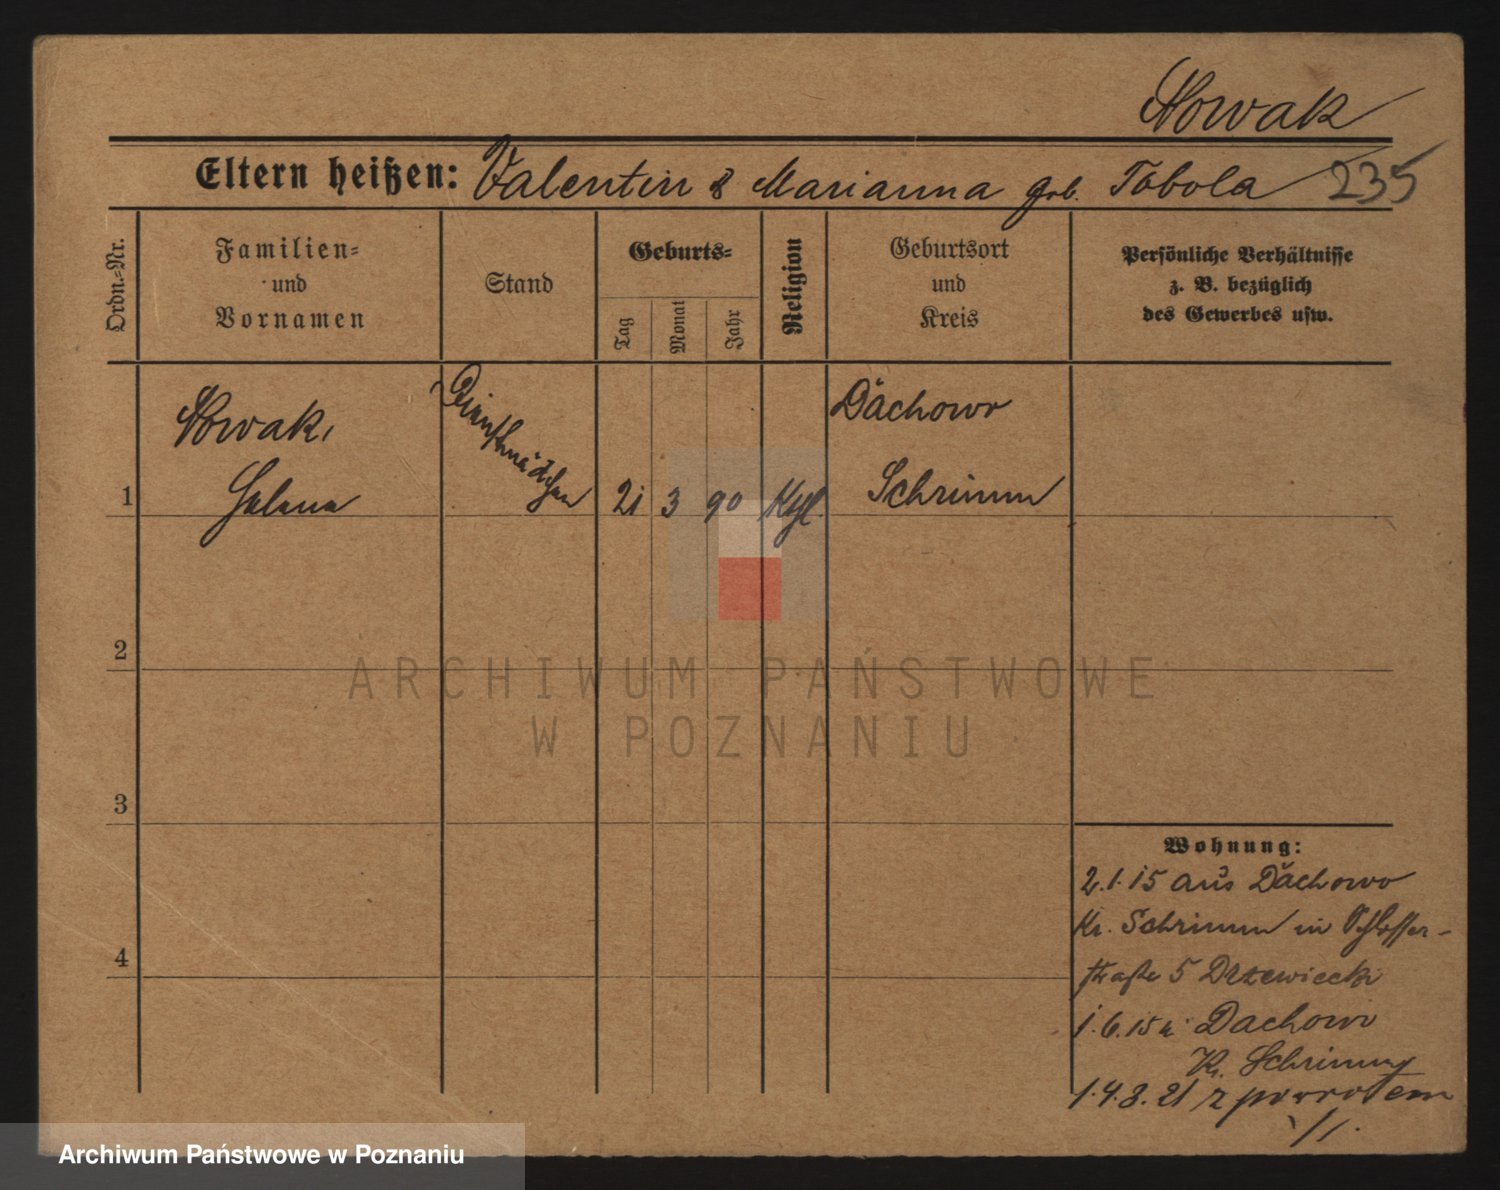 Nowak
Eltern heißen: Valentin & Marianna geb. Tobola 235
Ordn.-Nr.
Familien-
und
Vornamen
Stand
Geburts-
Tag
Monat
Jahr
Religion
Geburtsort
und
Kreis
Persönliche Verhältnisse
z. B. bezüglich
des Gewerbes usw.
1
Nowak,
Helena
Dienstmädchen
21 3 90 Kth.
Dachowo
Schrimm
2
3
4
Wohnung:
2.1.15 aus Dachowo
Kr. Schrimm in Schlosser-
straße 5 Drzewiecki
1.6.15 n. Dachowo
Kr. Schrimm
z powrotem
ARCHIWUM PAŃSTWOWE
W POZNANIU
Archiwum Państwowe w Poznaniu